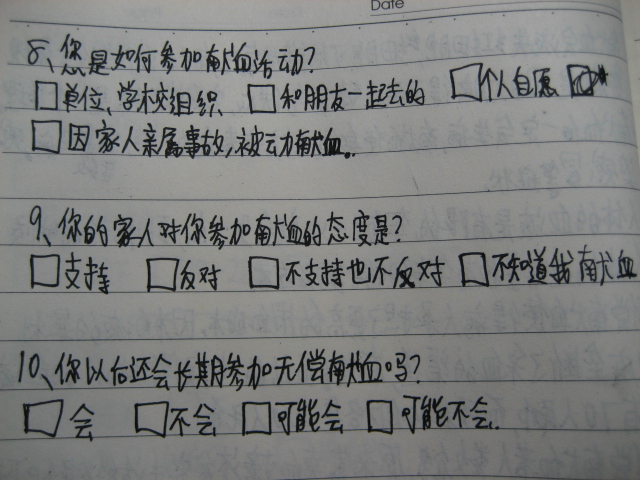 Date
8、您是如何参加献血活动?
□单位、学校组织 □和朋友一起去的 □个人自愿
□因家人亲属事故,被动献血。
9、你的家人对你参加献血的态度是?
□支持 □反对 □不支持也不反对 □不知道我献血
10、你以后还会长期参加无偿献血吗?
□会 □不会 □可能会 □可能不会.